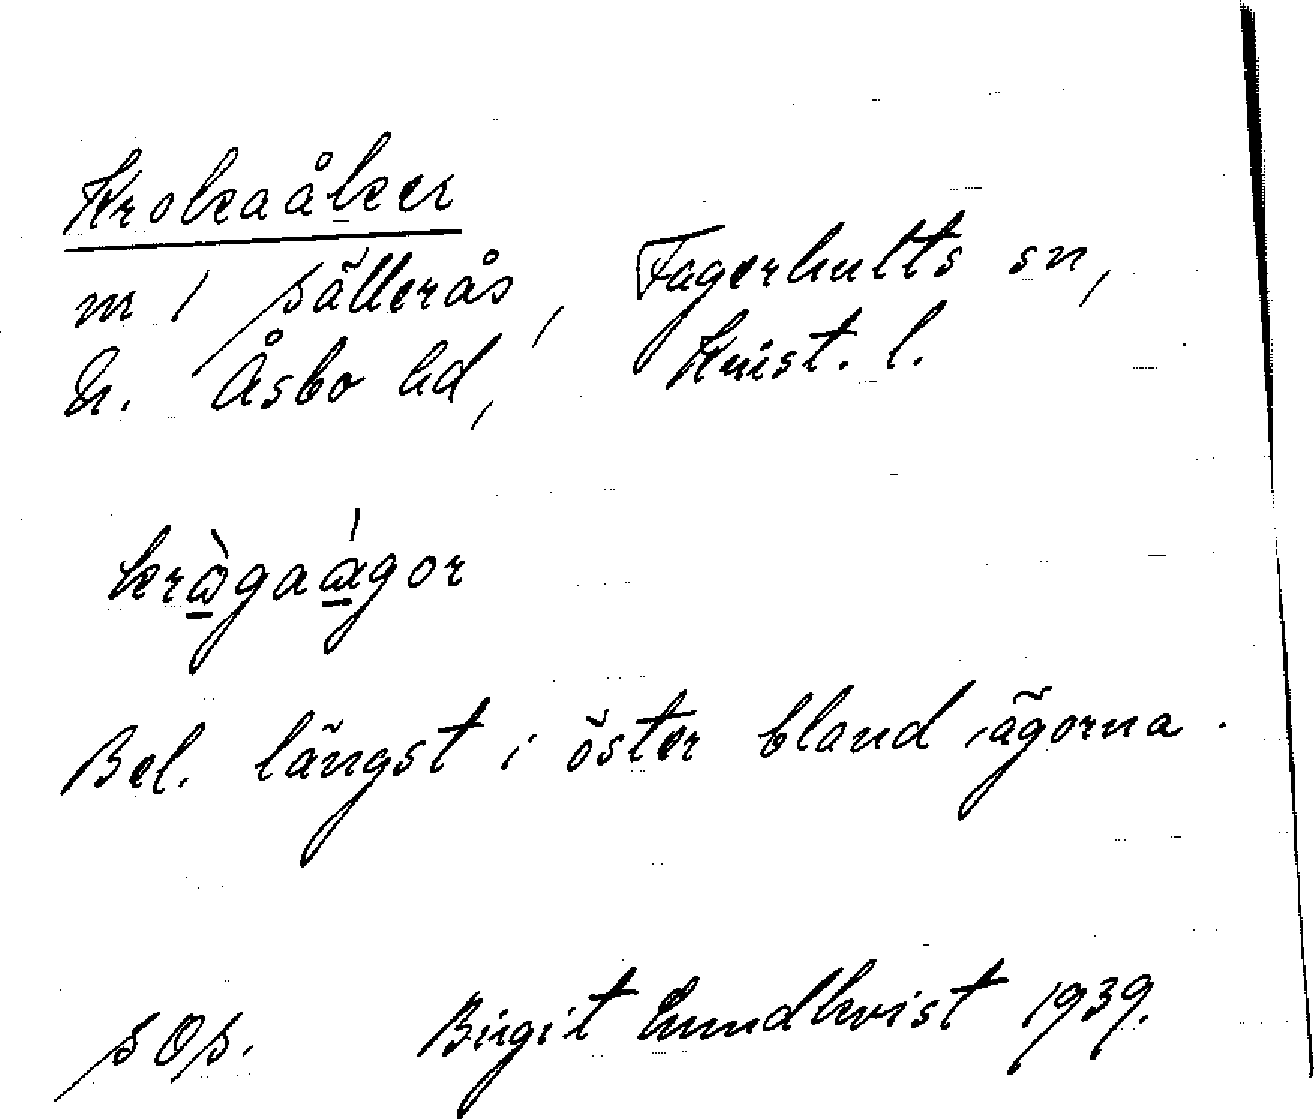 Krokaåker
m 1 Sällerås, Fagerhults sn,
N. Åsbo hd, Krist. l.
kràgaágor
Bel. längst i öster bland ägorna.
SOS. Birgit Lundkvist 1939.